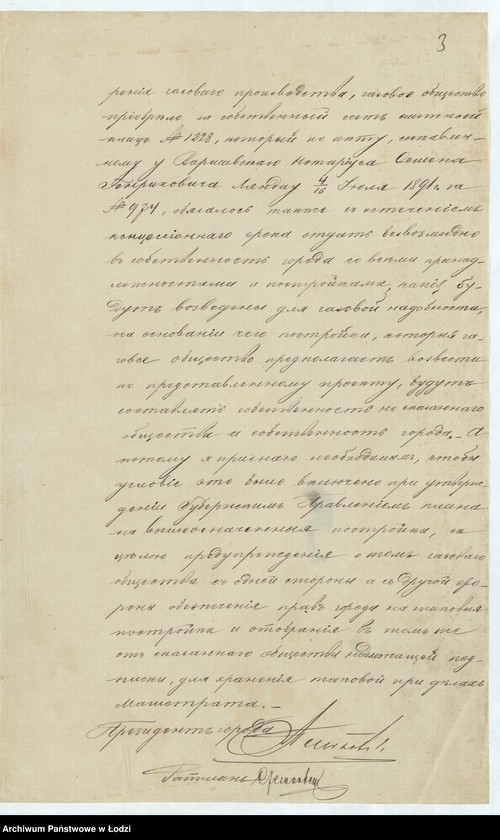 3
ренiя газоваго производства, газовое общество
прiобрѣло на собственный счетъ смежный
плацъ № 1228, который по акту, составлен-
ному у Варшавскаго Нотарiуса Семена
Генриховича Ландау 4/16 Iюля 1891 г. за
№ 974, обязалось также съ истеченiемъ
концессiоннаго срока отдать безвозмездно
въ собственность города со всѣми принад-
лежностями и постройками, какiя бу-
дутъ возведены для газовой надобности,
на основанiи чего постройки, которыя га-
зовое общество предполагаетъ возвести
по представленному проекту, будутъ
составлять собственность не сказаннаго
общества а собственность города. – А
потому я признаю необходимымъ, чтобы
условiе это было включено при утверж-
денiи Губернскимъ Правленiемъ плана
на вышеозначенныя постройки, съ
цѣлью предупрежденiя о томъ газоваго
общества съ одной стороны а съ другой сто-
роны обезпеченiя правъ города на таковыя
постройки и отобранiя въ томъ же
отъ сказаннаго общества надлежащей под-
писки, для храненiя таковой при дѣлахъ
магистрата. –
Президентъ города
Ратманъ
Archiwum Państwowe w Łodzi